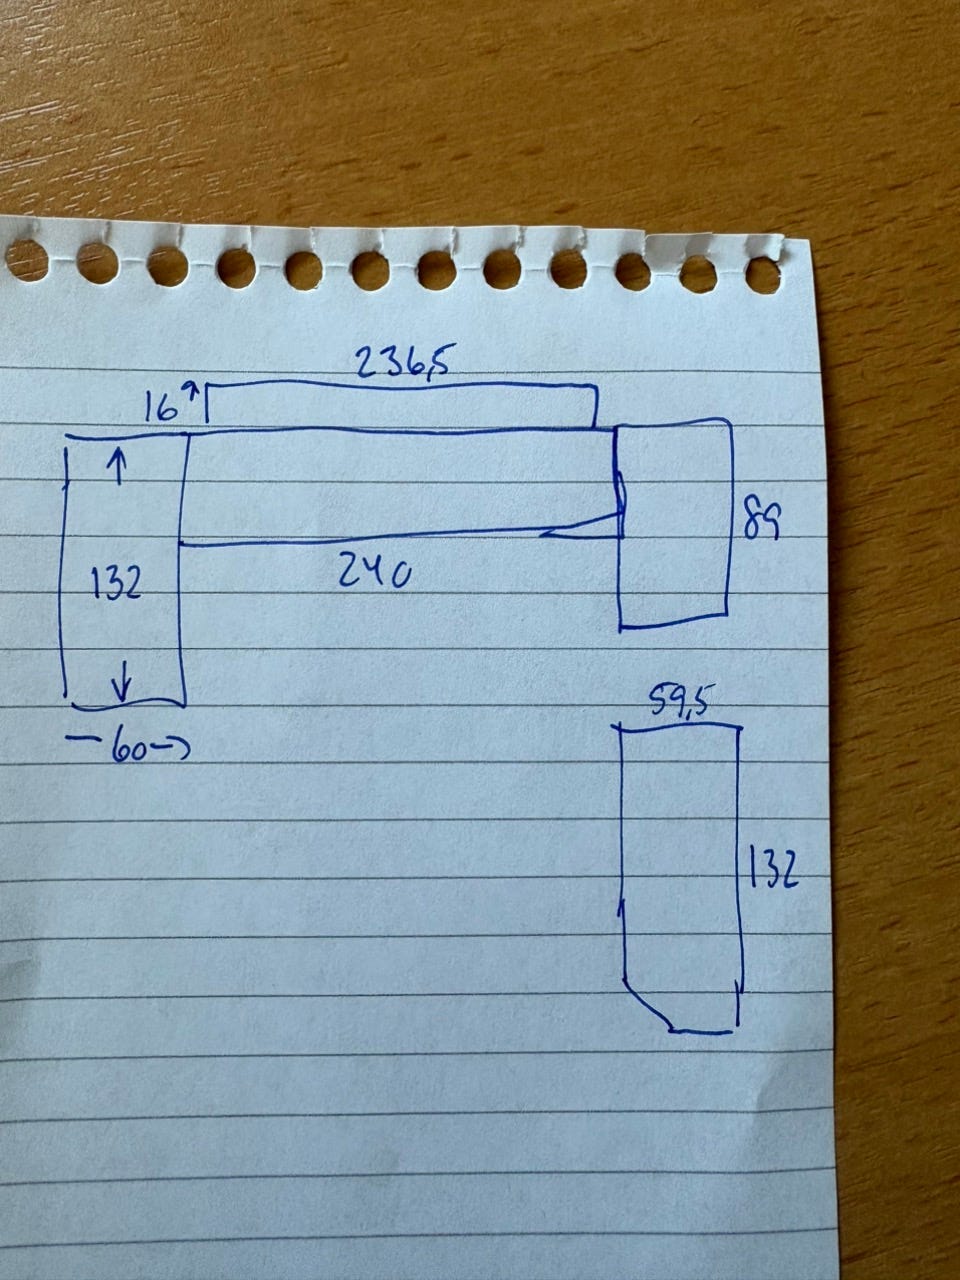 236,5
16
89
132
240
60
59,5
132